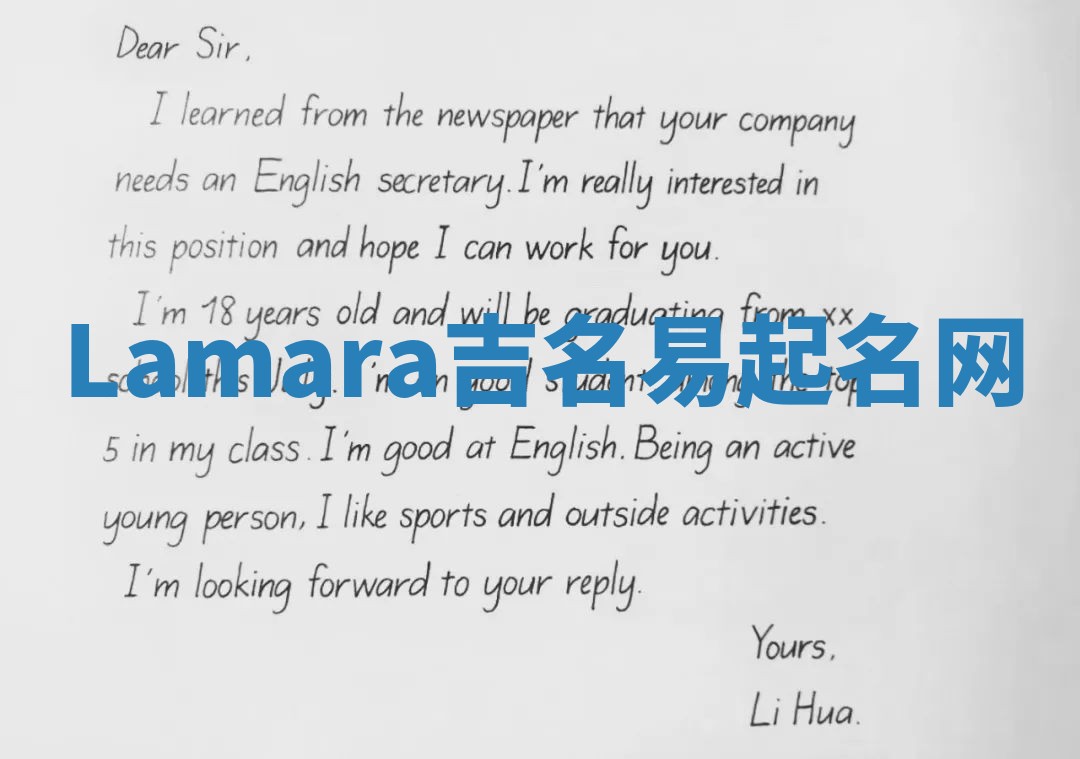 Dear Sir,
I learned from the newspaper that your company
needs an English secretary. I'm really interested in
this position and hope I can work for you.
I'm 18 years old and will be graduating from xx
Lamara吉名易起名网
school this July. student among the top
5 in my class. I'm good at English. Being an active
young person, I like sports and outside activities.
I'm looking forward to your reply.
Yours,
Li Hua.